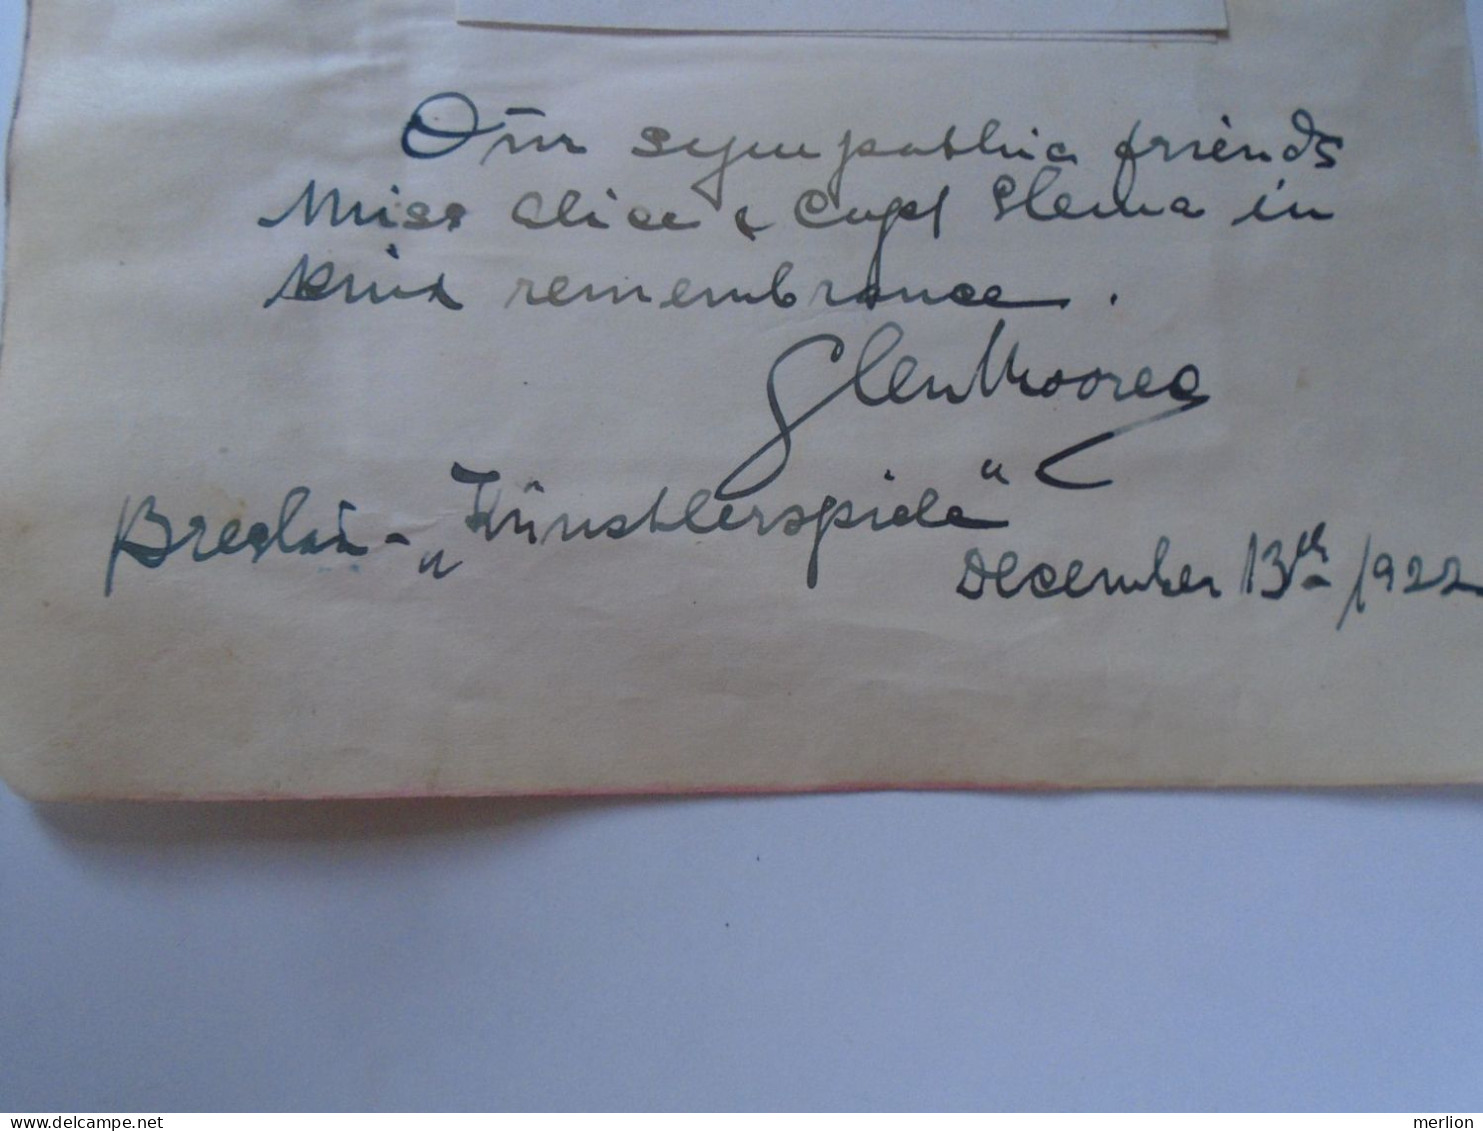 Our sympathic friends
Miss Alice & Capt Slema in
kind remembrance.
Glen Moorea
Breslau - „Künstlerspiele“
December 13th/1922
merlion